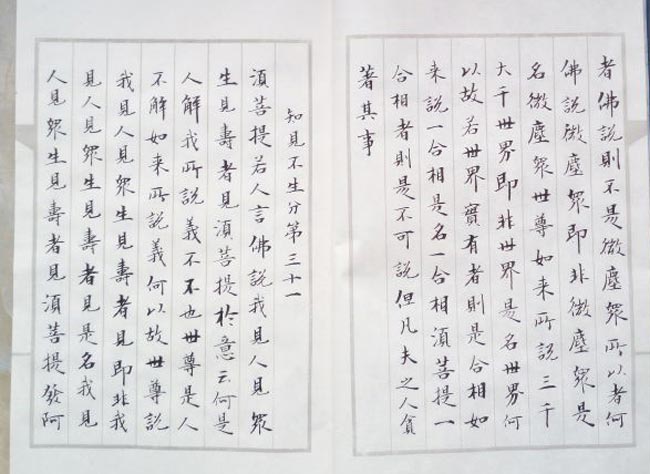 者佛說則不是微塵眾所以者何
佛說微塵眾即非微塵眾是
名微塵眾世尊如来所說三千
大千世界即非世界是名世界何
以故若世界實有者則是合相如
来說一合相是名一合相須菩提一
合相者則是不可說但凡夫之人貪
著其事
知見不生分第三十一
須菩提若人言佛說我見人見眾
生見壽者見須菩提於意云何是
人解我所說義不不也世尊是人
不解如来所說義何以故世尊說
我見人見眾生見壽者見即非我
見人見眾生見壽者見是名我見
人見眾生見壽者見須菩提發阿